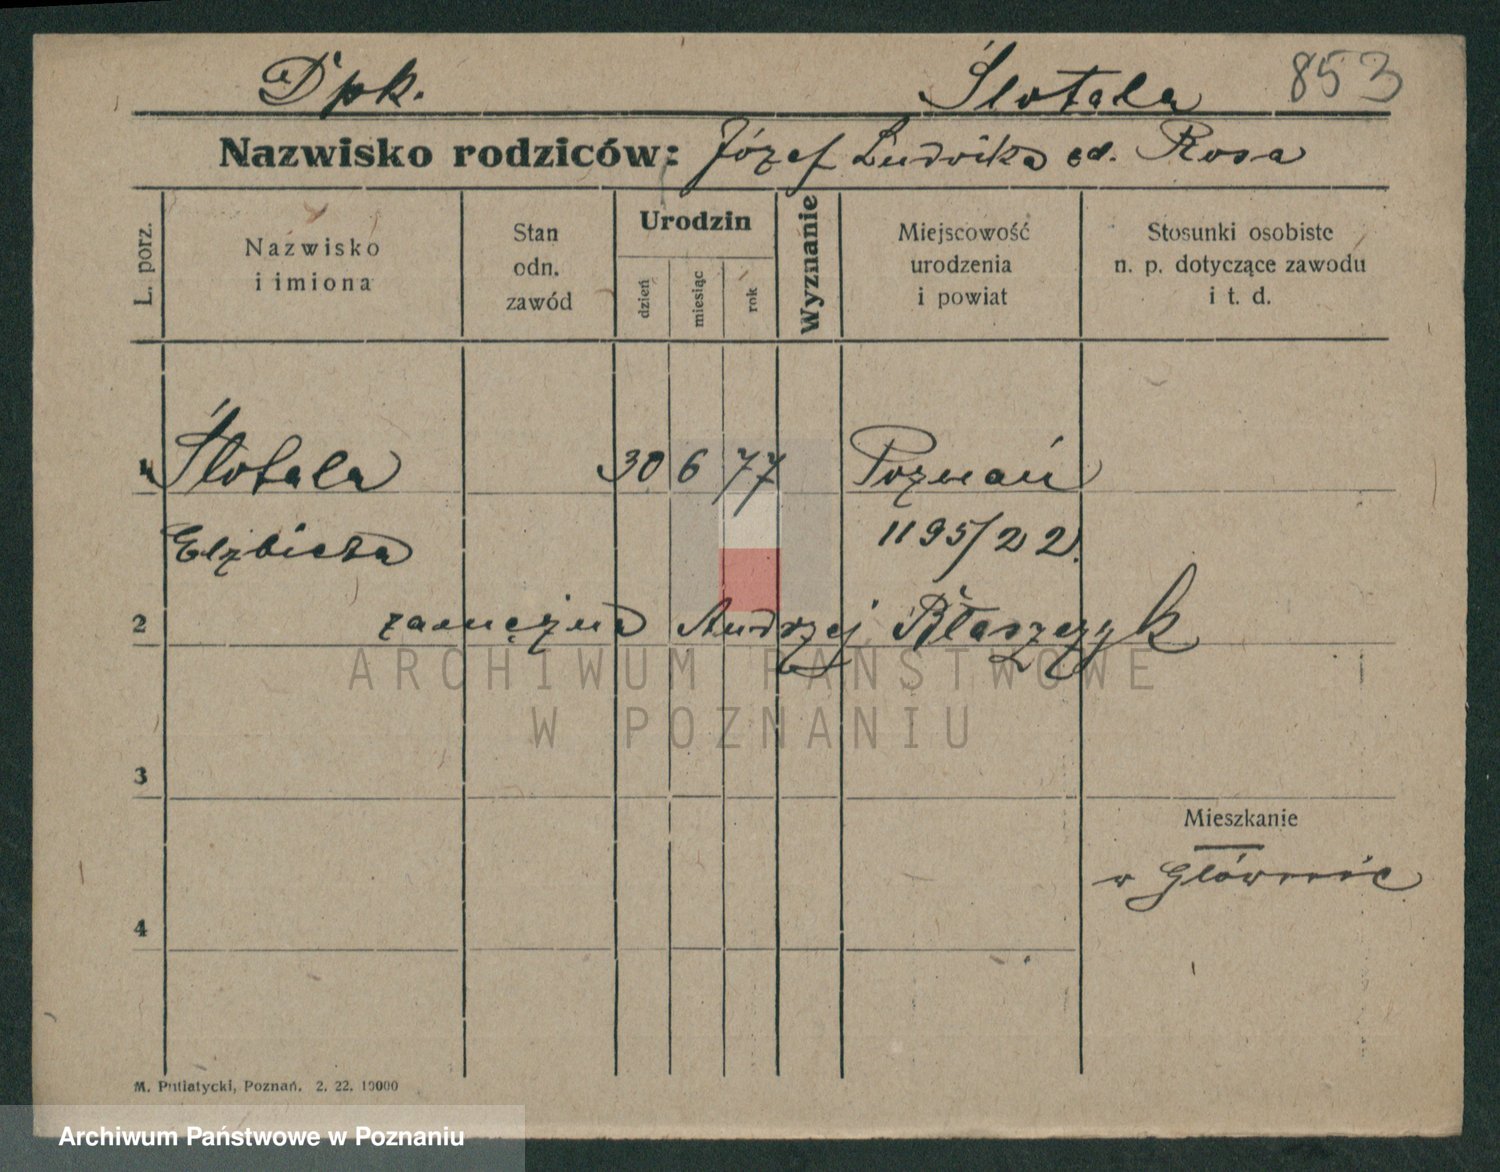 Dpk. Ślotala 853
Nazwisko rodziców: Józef Ludwika od. Rosa
L. porz.
Nazwisko
i imiona
Stan
odn.
zawód
Urodzin
dzień
miesiąc
rok
Wyznanie
Miejscowość
urodzenia
i powiat
Stosunki osobiste
n. p. dotyczące zawodu
i t. d.
1 Ślotala 30 6 77 Poznań
Elżbieta 1195/22
2 zamężna Andrzej Błaszczyk
ARCHIWUM PAŃSTWOWE
W POZNANIU
3
Mieszkanie
w Głównie
4
M. Putiatycki, Poznań. 2. 22. 10000
Archiwum Państwowe w Poznaniu